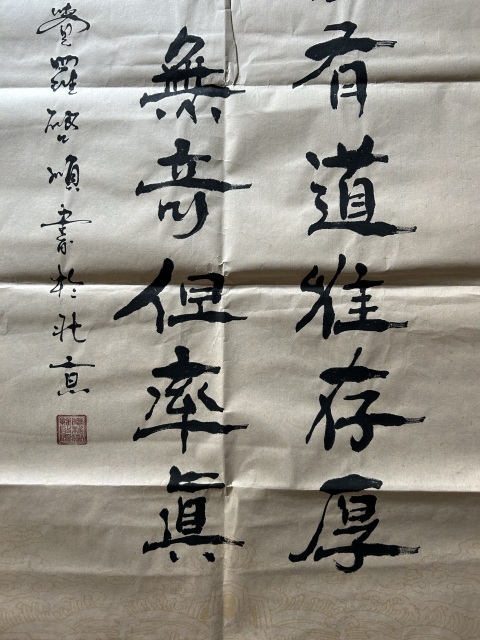 有道惟存厚
無奇但率真
覺羅啓順書於北京